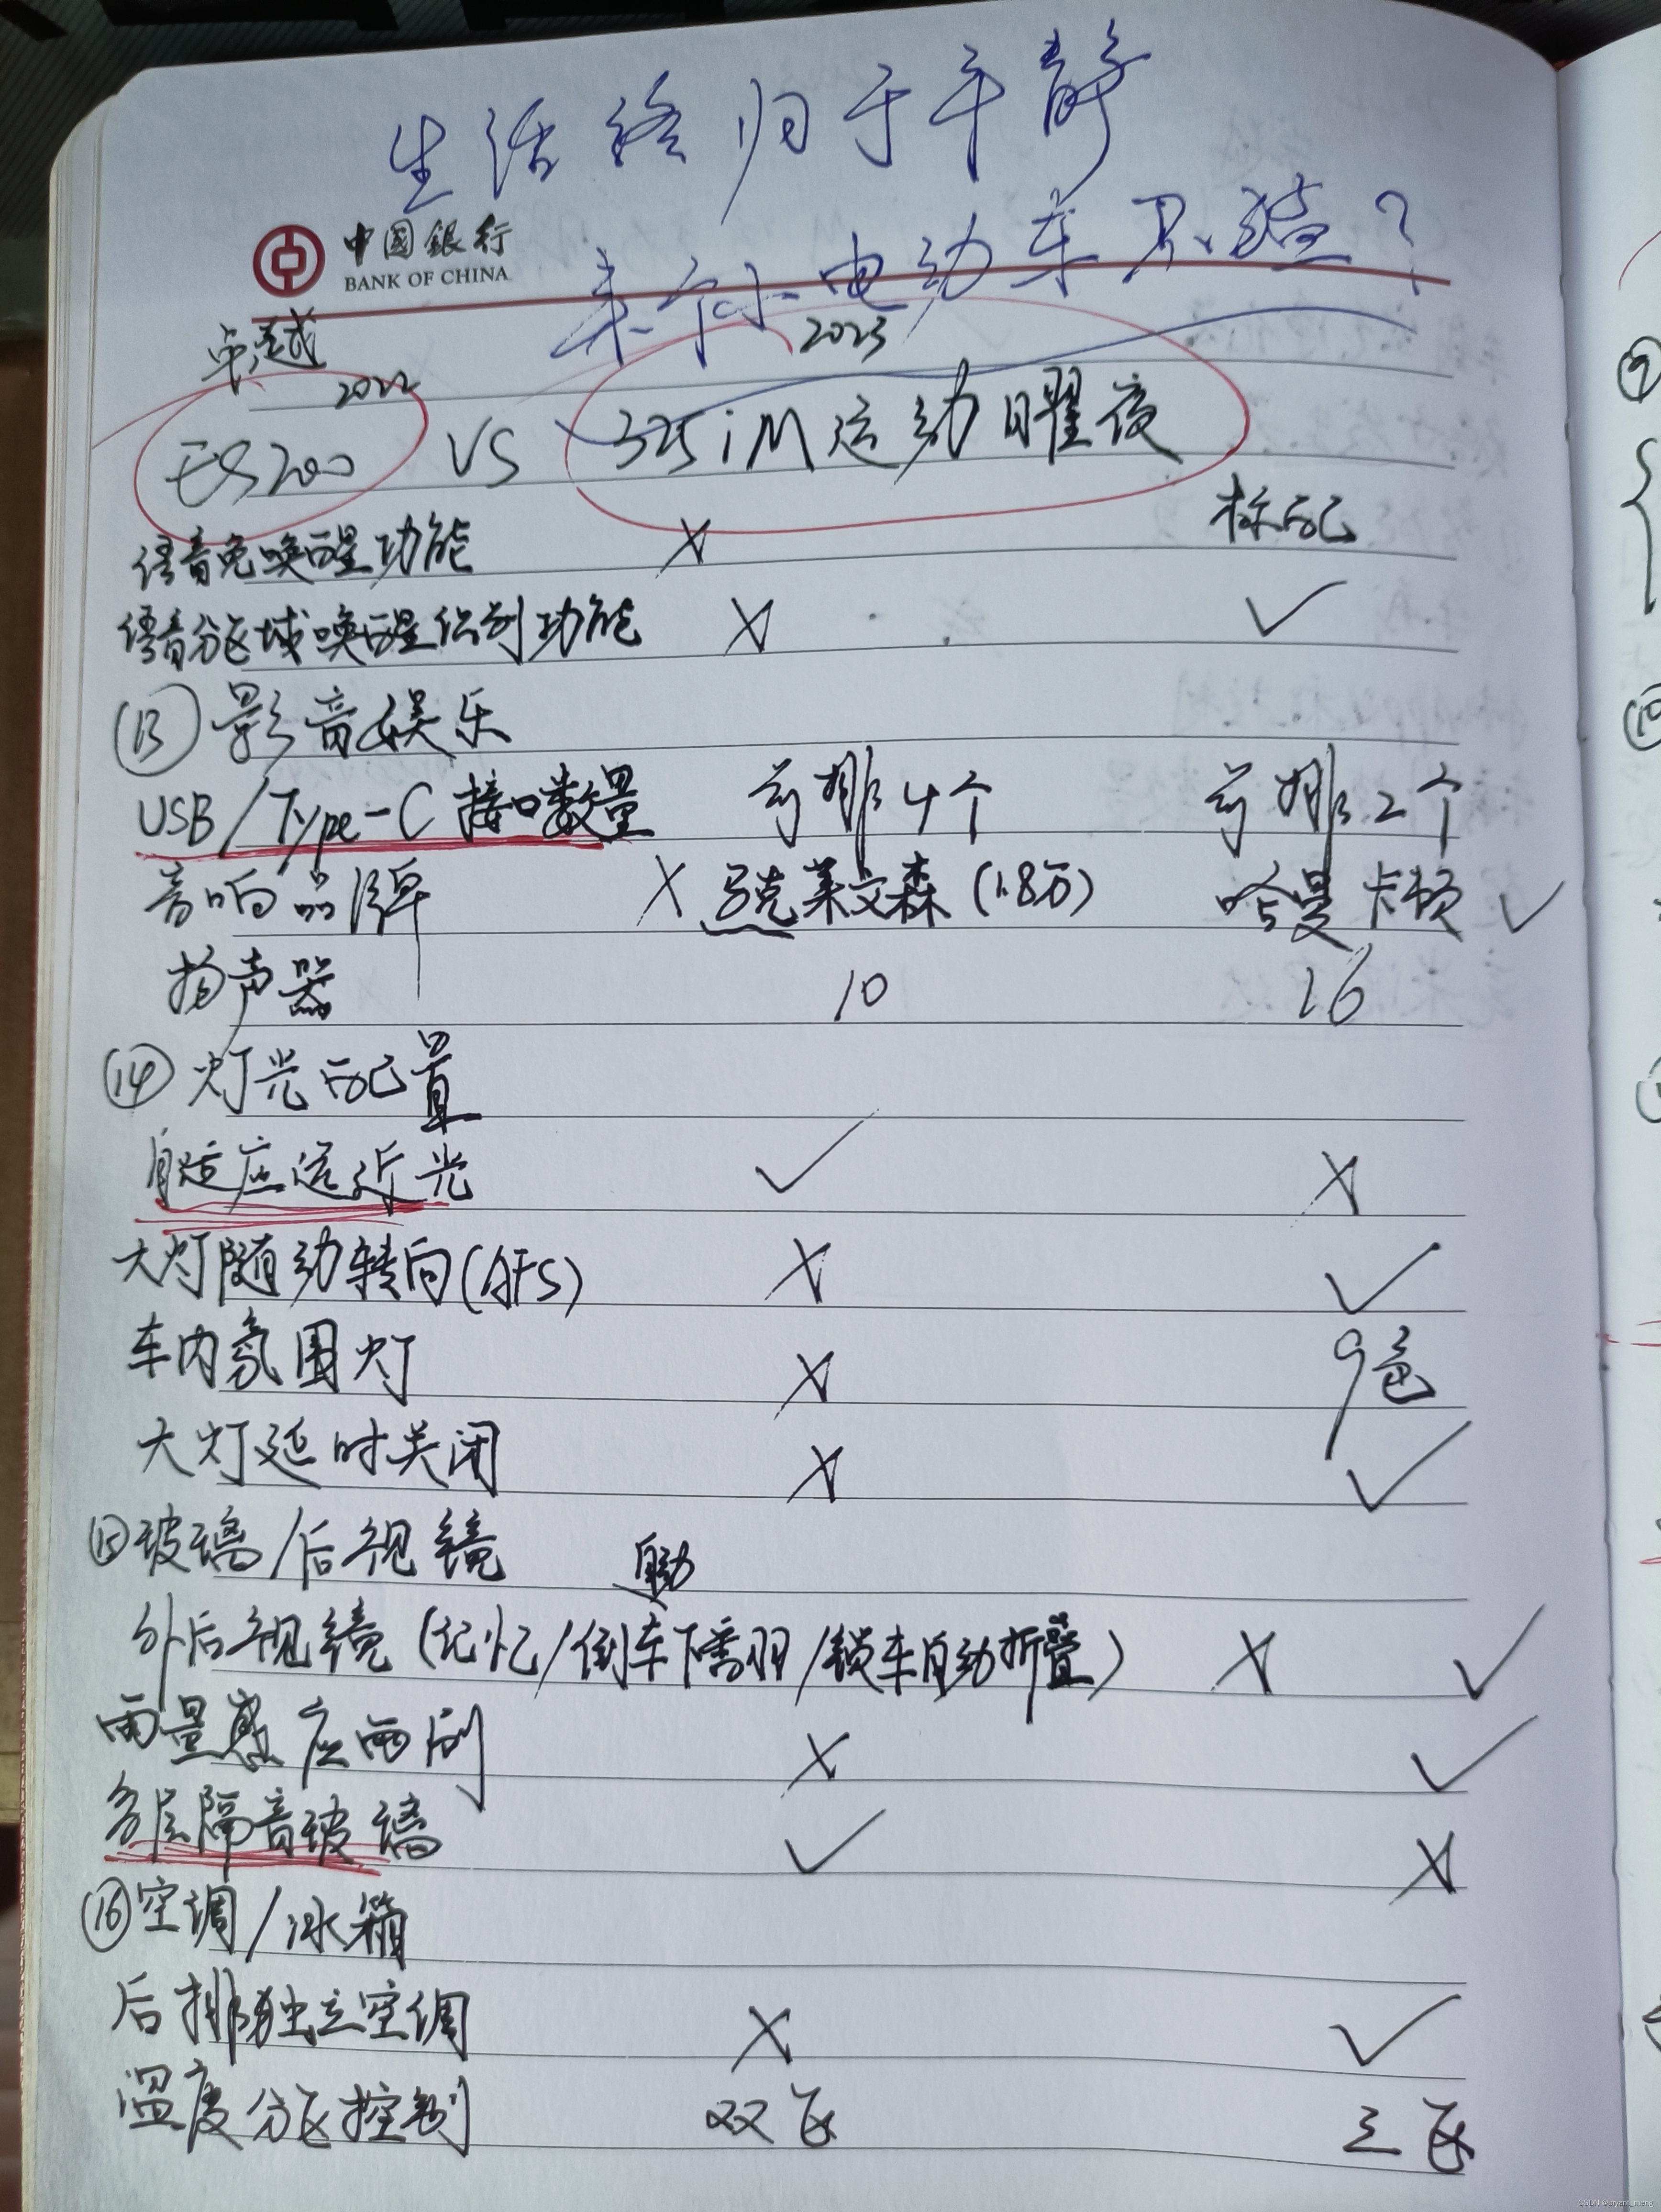 生活终归于平静
中國銀行
BANK OF CHINA
来个小电动车不骚？
卓越
2022 2023
ES200 VS 325iM运动曜夜
语音免唤醒功能 X 标配
语音分区域唤醒识别功能 X ✓
⑬影音娱乐
USB/Type-C接口数量 前排4个 前排2个
音响品牌 X 马克莱文森(1.8万) 哈曼卡顿 ✓
扬声器 10 16
⑭灯光配置
自适应远近光 ✓ X
大灯随动转向(AFS) X ✓
车内氛围灯 X 9色
大灯延时关闭 X ✓
⑮玻璃/后视镜
自动
外后视镜(记忆/倒车下翻/锁车自动折叠) X ✓
雨量感应雨刷 X ✓
多层隔音玻璃 ✓ X
⑯空调/冰箱
后排独立空调 X ✓
温度分区控制 双区 三区
⑨
⑩
CSDN @bryant_meng